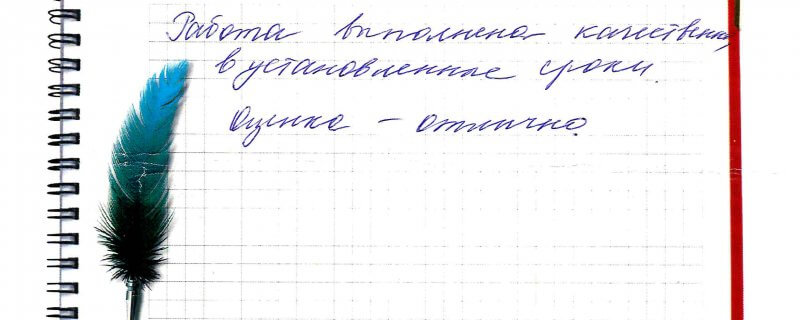 Работа выполнена качественно
в установленные сроки.
Оценка - отлично.